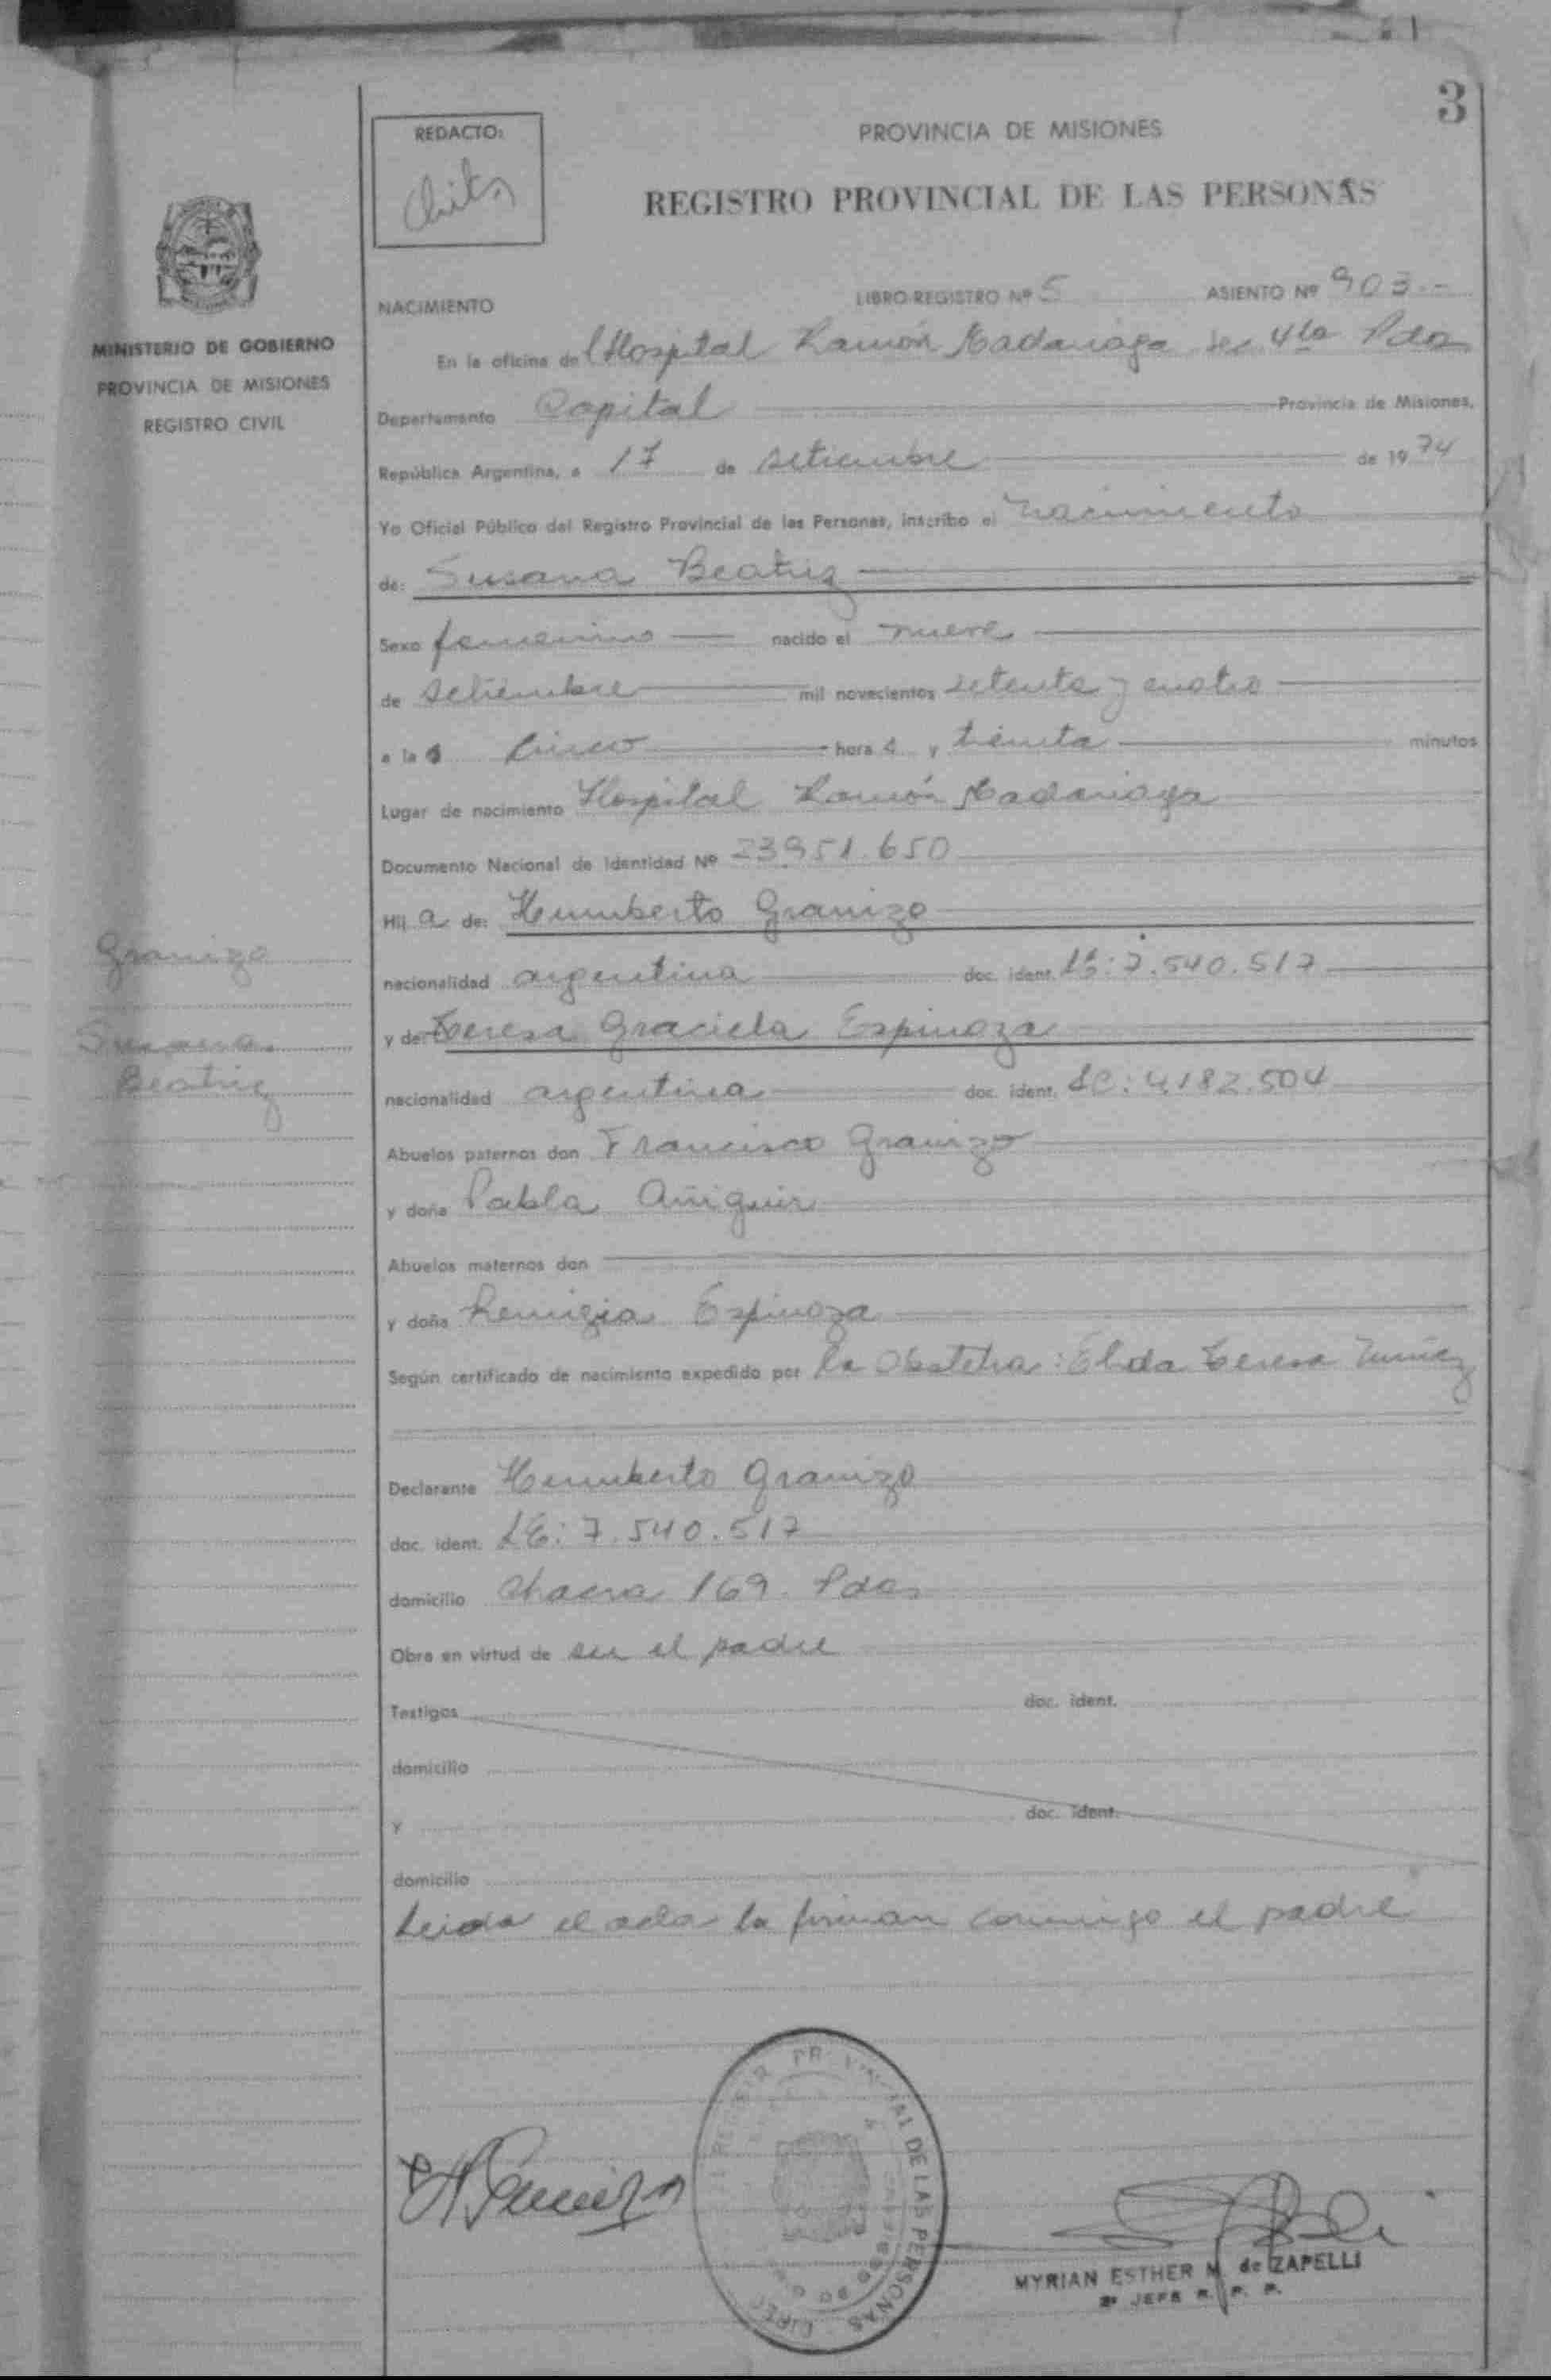 3
REDACTO:
Chita
PROVINCIA DE MISIONES
REGISTRO PROVINCIAL DE LAS PERSONAS
MINISTERIO DE GOBIERNO
PROVINCIA DE MISIONES
REGISTRO CIVIL
NACIMIENTO LIBRO-REGISTRO Nº 5 ASIENTO Nº 903.-
En la oficina del Hospital Ramón Madariaga Sec 4ta Pdas
Departamento Capital Provincia de Misiones,
República Argentina, a 17 de setiembre de 1974
Yo Oficial Público del Registro Provincial de las Personas, inscribo el nacimiento
de: Susana Beatriz
Sexo femenino nacido el nueve
de setiembre mil novecientos setenta y cuatro
a las cinco hora s y treinta minutos
Lugar de nacimiento Hospital Ramón Madariaga
Documento Nacional de Identidad Nº 23951.650
Hij a de: Humberto Granizo
nacionalidad argentina doc. ident. LE: 7.540.517
y de: Teresa Graciela Espinoza
nacionalidad argentina doc. ident. LC: 4.182.504
Granizo
Susana
Beatriz
Abuelos paternos don Francisco Granizo
y doña Pabla
Abuelos maternos don
y doña Remigia Espinoza
Según certificado de nacimiento expedido por la Obstetra: Elida Teresa Nuñez
Declarante Humberto Granizo
doc. ident. LE: 7.540.517
domicilio Chacra 169. Pdas
Obra en virtud de ser el padre
Testigos doc. ident.
domicilio
y doc. ident.
domicilio
Leida el acta la firman conmigo el padre
DE LAS PERSONAS
MYRIAN ESTHER M. de ZAPELLI
2º JEFE R. P. P.